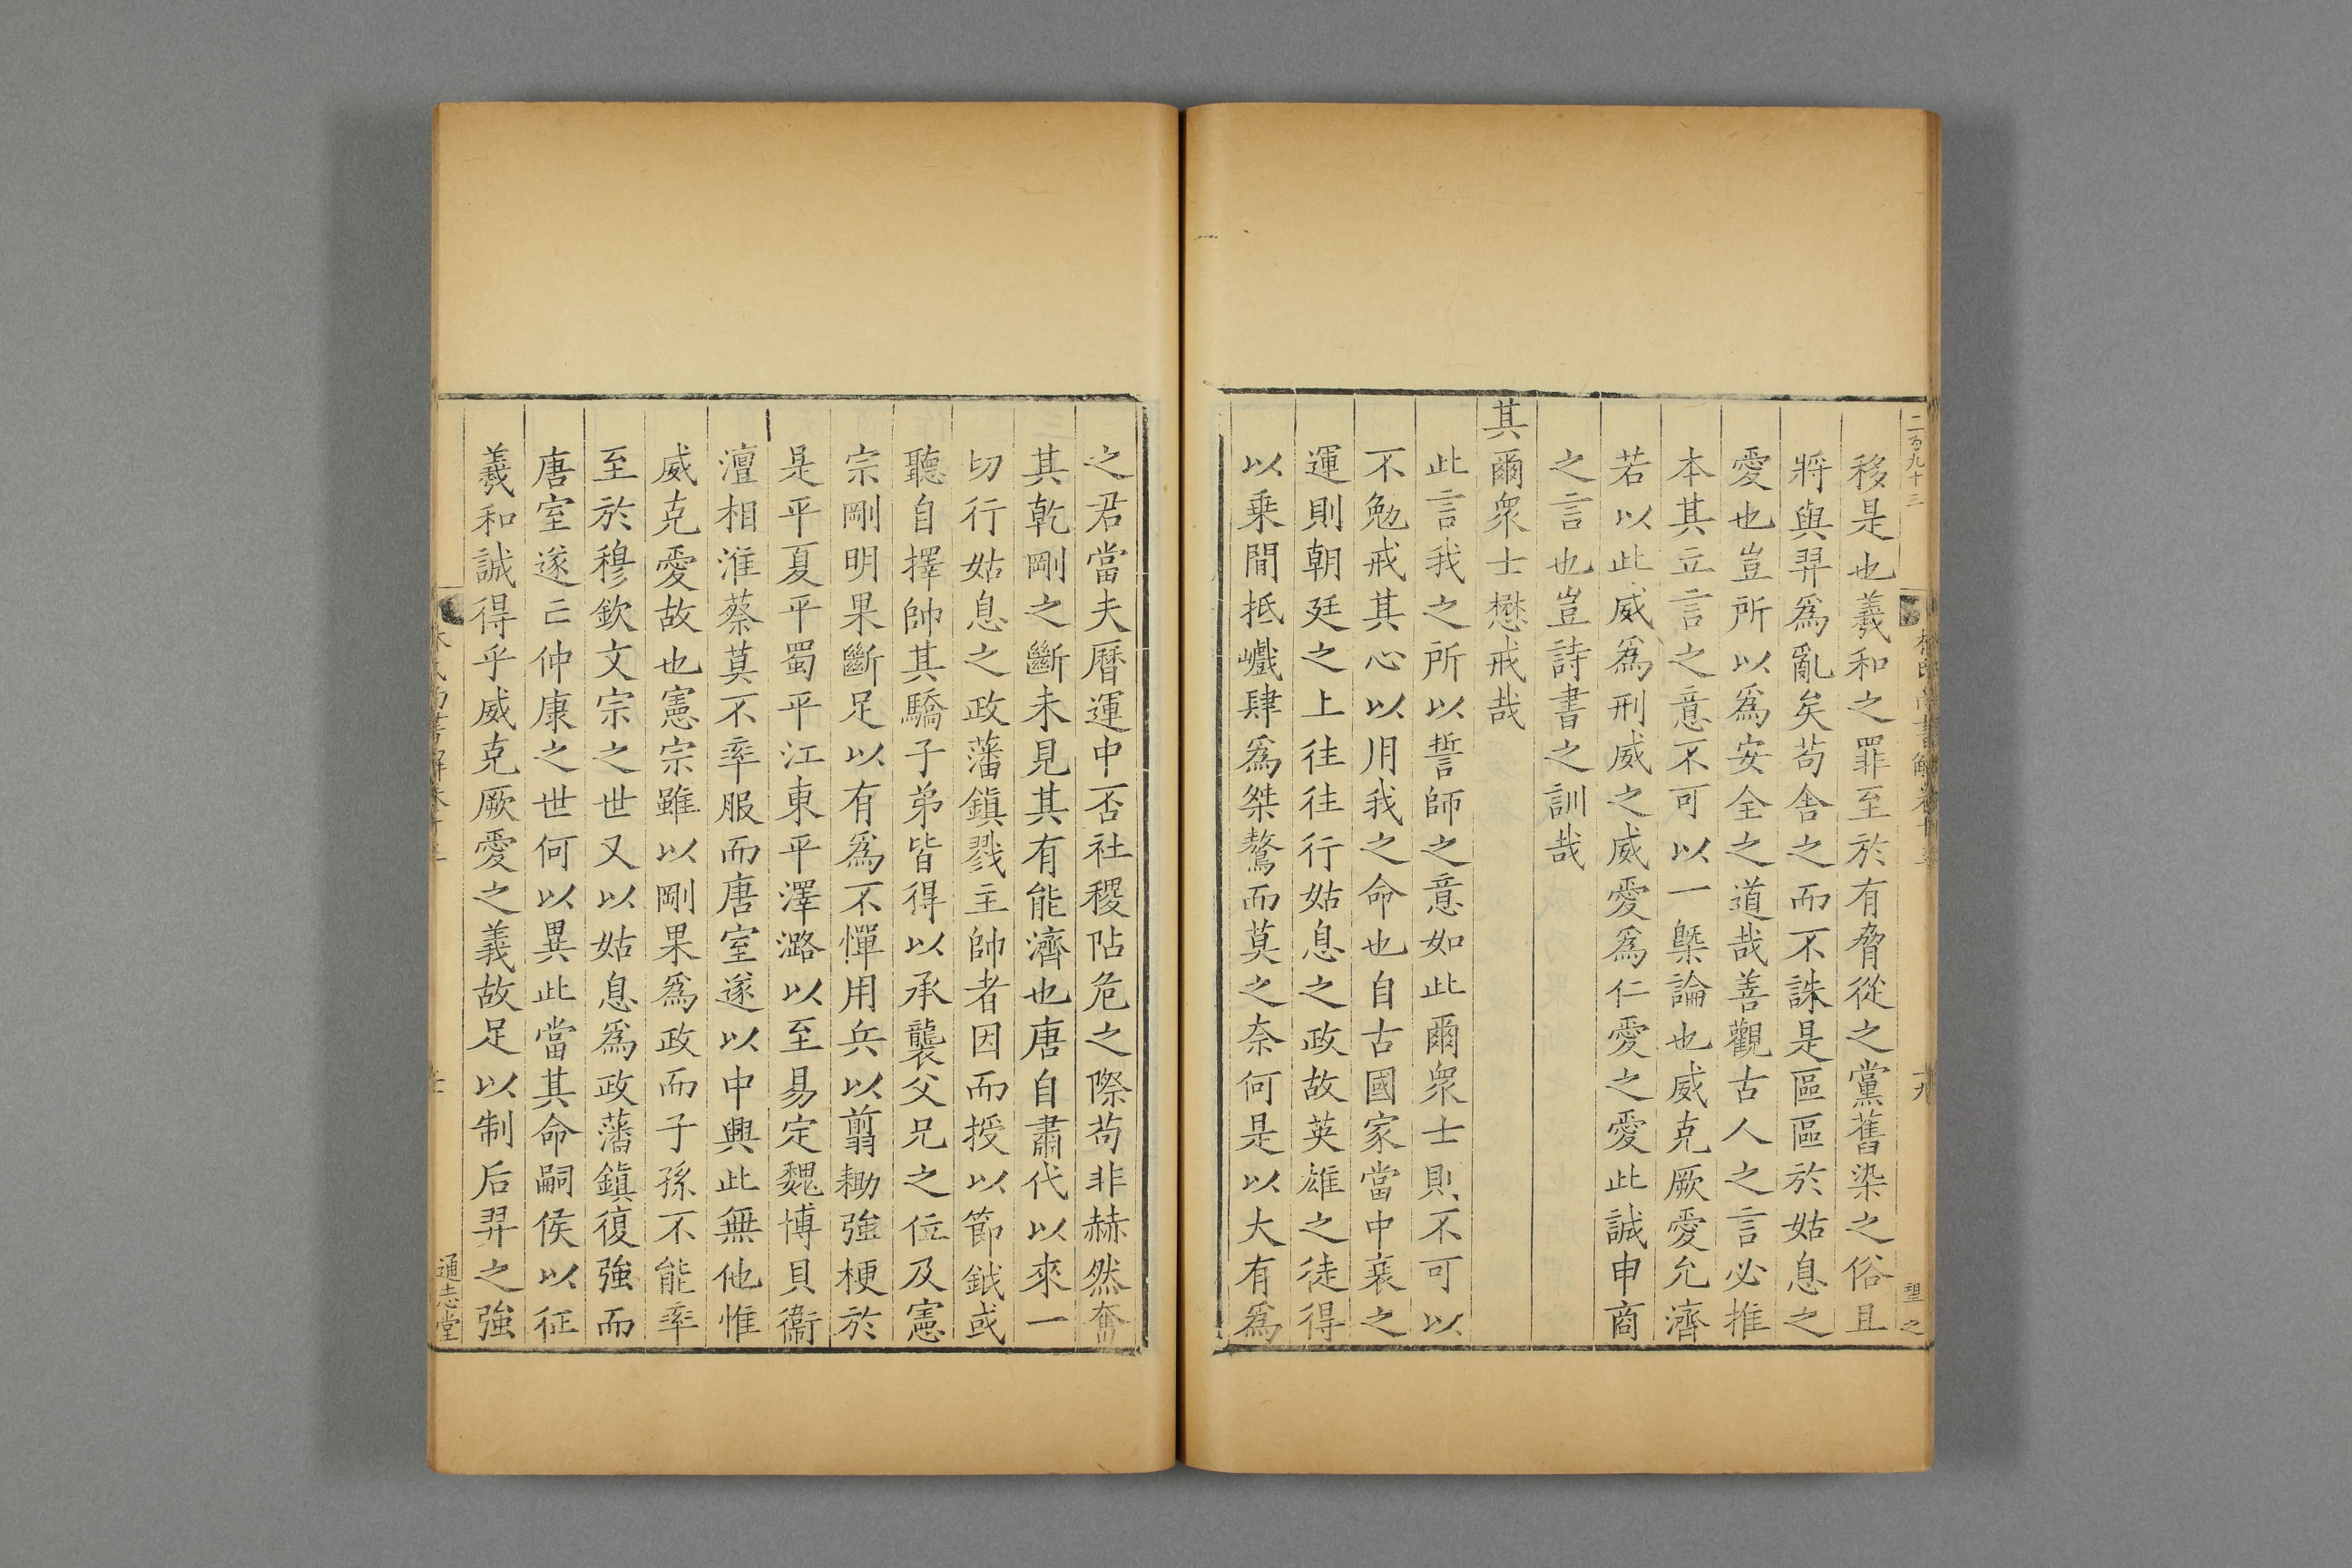 二百九十三
移是也羲和之罪至於有脅從之黨舊染之俗且
將與羿爲亂矣苟舍之而不誅是區區於姑息之
愛也豈所以爲安全之道哉善觀古人之言必推
本其立言之意不可以一槩論也威克厥愛允濟
若以此威爲刑威之威愛爲仁愛之愛此誠申商
之言也豈詩書之訓哉
其爾衆士懋戒哉
此言我之所以誓師之意如此爾衆士則不可以
不勉戒其心以用我之命也自古國家當中衰之
運則朝廷之上往往行姑息之政故英雄之徒得
以乗間抵巇肆爲桀驁而莫之奈何是以大有爲
之君當夫曆運中否社稷阽危之際苟非赫然奮
其乾剛之斷未見其有能濟也唐自肅代以來一
切行姑息之政藩鎮戮主帥者因而授以節鉞或
聽自擇帥其驕子弟皆得以承襲父兄之位及憲
宗剛明果斷足以有爲不憚用兵以翦耡強梗於
是平夏平蜀平江東平澤潞以至易定魏博貝衞
澶相淮蔡莫不率服而唐室遂以中興此無他惟
威克愛故也憲宗雖以剛果爲政而子孫不能率
至於穆欽文宗之世又以姑息爲政藩鎮復強而
唐室遂亡仲康之世何以異此當其命嗣侯以征
羲和誠得乎威克厥愛之義故足以制后羿之強
通志堂